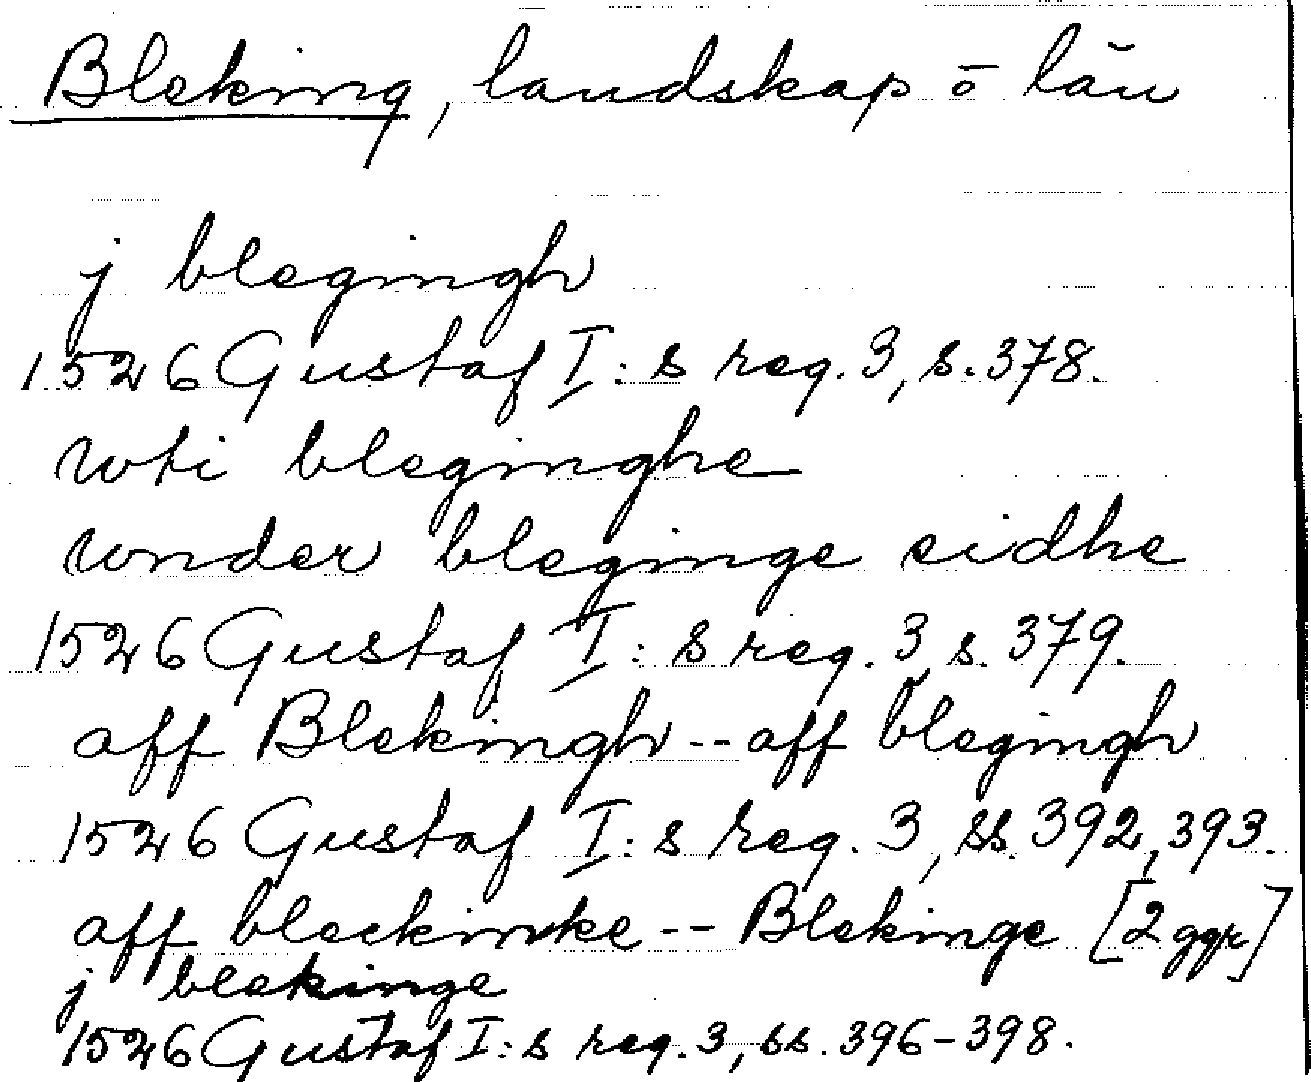 Bleking, landskap ō län
j blegingh
1526 Gustaf I:s reg. 3, s. 378.
wti bleginghe
wnder bleginge sidhe
1526 Gustaf I:s reg. 3 s. 379.
aff Blekingh -- aff blegingh
1526 Gustaf I:s reg. 3, ss. 392, 393.
aff bleckinke -- Blekinge [2 ggr]
j blekinge
1526 Gustaf I:s reg. 3, ss. 396-398.